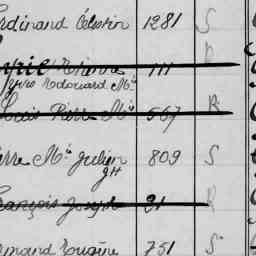 Ferdinand Célestin 1281 S
Etienne 111 R
Yves Edouard Mie
Louis Pierre Mie 567 R
Pierre Mie Julien 809 S
J H
François Joseph 21 R
Armand Eugène 751 S